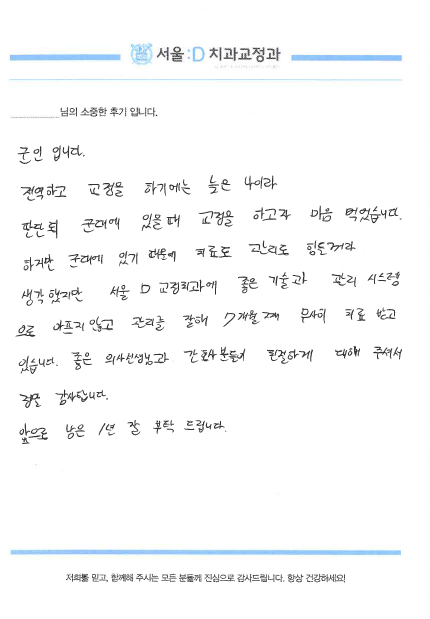 서울:D 치과교정과
님의 소중한 후기 입니다.
군인 입니다.
전역하고 교정을 하기에는 늦은 나이라
판단되 군대에 있을때 교정을 하고자 마음 먹었습니다.
하지만 군대에 있기 때문에 치료도 관리도 힘들거라
생각했지만 서울 D 교정치과에 좋은 기술과 관리 시스템
으로 아프지 않고 관리를 잘해 7개월 째 무사히 치료 받고
있습니다. 좋은 의사선생님과 간호사분들이 친절하게 대해 주셔서
정말 감사합니다.
앞으로 남은 1년 잘 부탁 드립니다.
저희를 믿고, 함께해 주시는 모든 분들께 진심으로 감사드립니다. 항상 건강하세요!